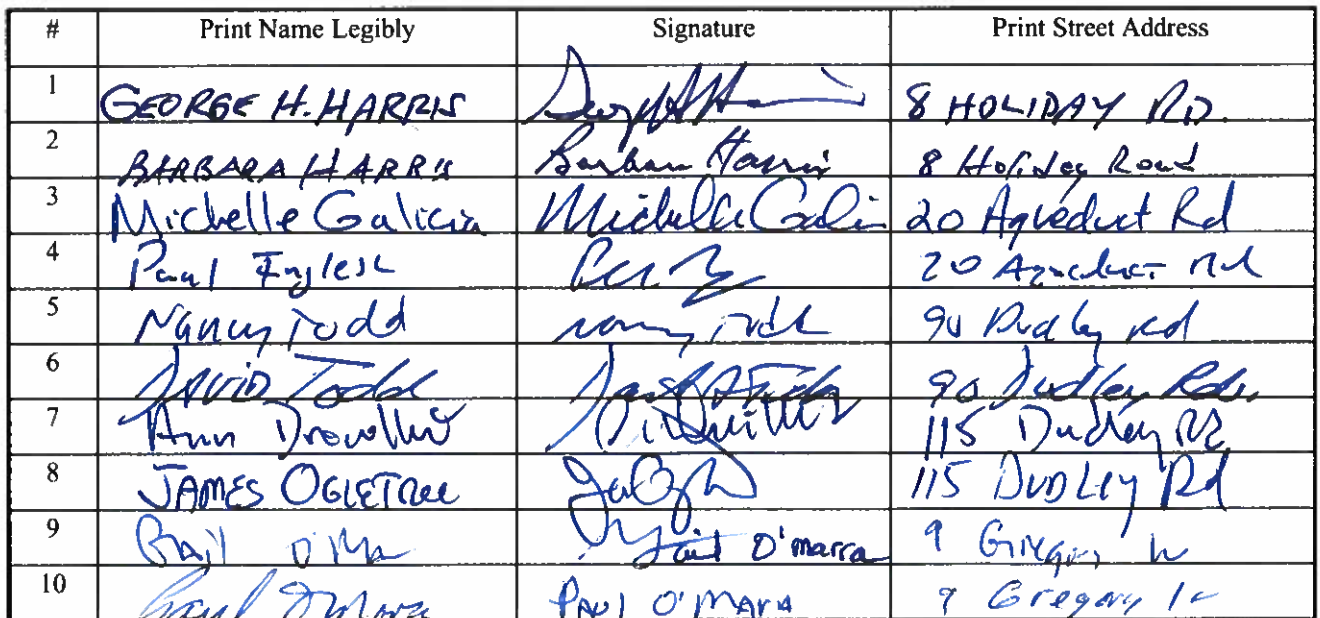 # Print Name Legibly Signature Print Street Address
1 GEORGE H. HARRIS 8 HOLIDAY RD.
2 BARBARA HARRIS Barbara Harris 8 Holiday Road
3 Michelle Galicia Michelle Galici 20 Aqueduct Rd
4 Paul Inglese 20 Aqueduct Rd
5 Nancy Todd Nancy Todd 90 Dudley Rd
6 DAVID Todd 90 Dudley Rd.
7 Ann 115 Dudley Rd
8 JAMES OGLETRee 115 DUDLEY Rd
9 Gail O'Ma Gail O'marra 9 Gregory
10 Paul O'Mara PAUl O'MARA 9 Gregory ln